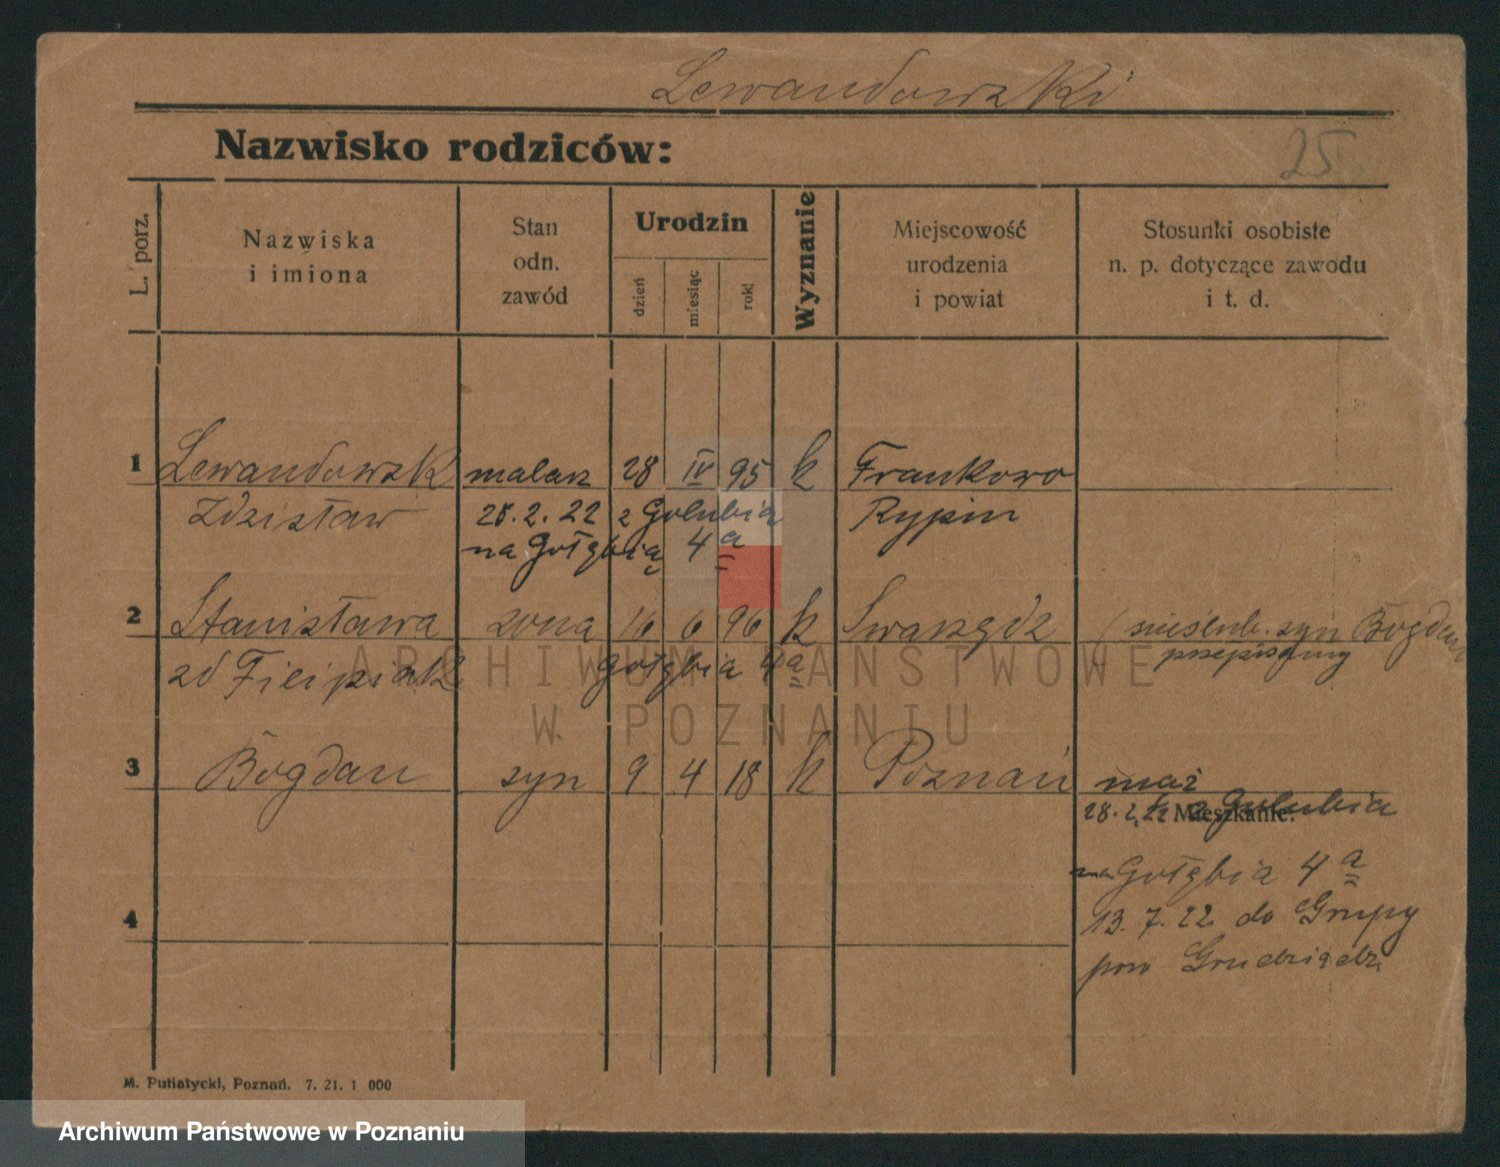 Lewandowski
Nazwisko rodziców:
25
L. porz.
Nazwiska
i imiona
Stan
odn.
zawód
Urodzin
dzień
miesiąc
rok
Wyznanie
Miejscowość
urodzenia
i powiat
Stosunki osobiste
n. p. dotyczące zawodu
i t. d.
1 Lewandowski malarz 28 IV 95 k Frankowo
Zdzisław 28.2.22 z Golubia Rypin
na Gołębią 4a
2 Stanisława zona 16 6 96 k Swarzędz (nieślub. syn Bogdan
zd Filipiak Gołębia 4a przepisany
3 Bogdan syn 9 4 18 k Poznań mąż
28.2.22 z Golubia
Mieszkanie:
na Gołębia 4a
4 13.7.22 do Grupy
pow Grudziądz
M. Putiatycki, Poznań. 7. 21. 1 000
ARCHIWUM PAŃSTWOWE
W POZNANIU
Archiwum Państwowe w Poznaniu